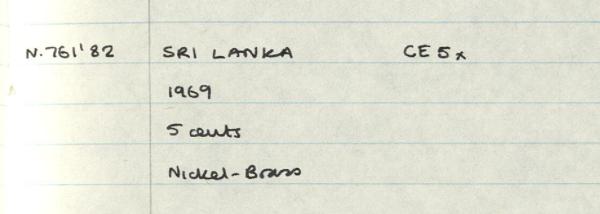 N.761'82 SRI LANKA CE 5x
1969
5 cents
Nickel-Brass